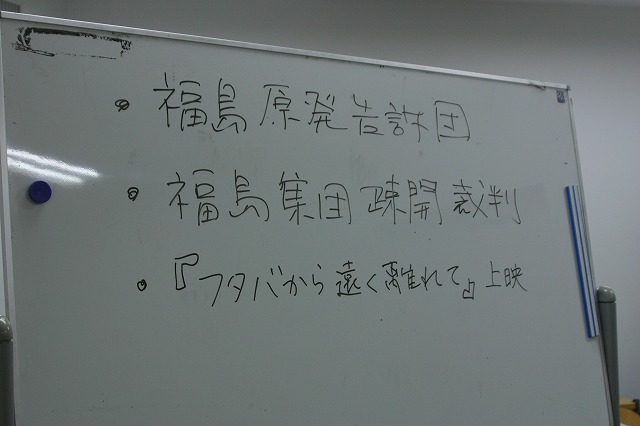 ・福島原発告訴団
・福島集団疎開裁判
・『フタバから遠く離れて』上映